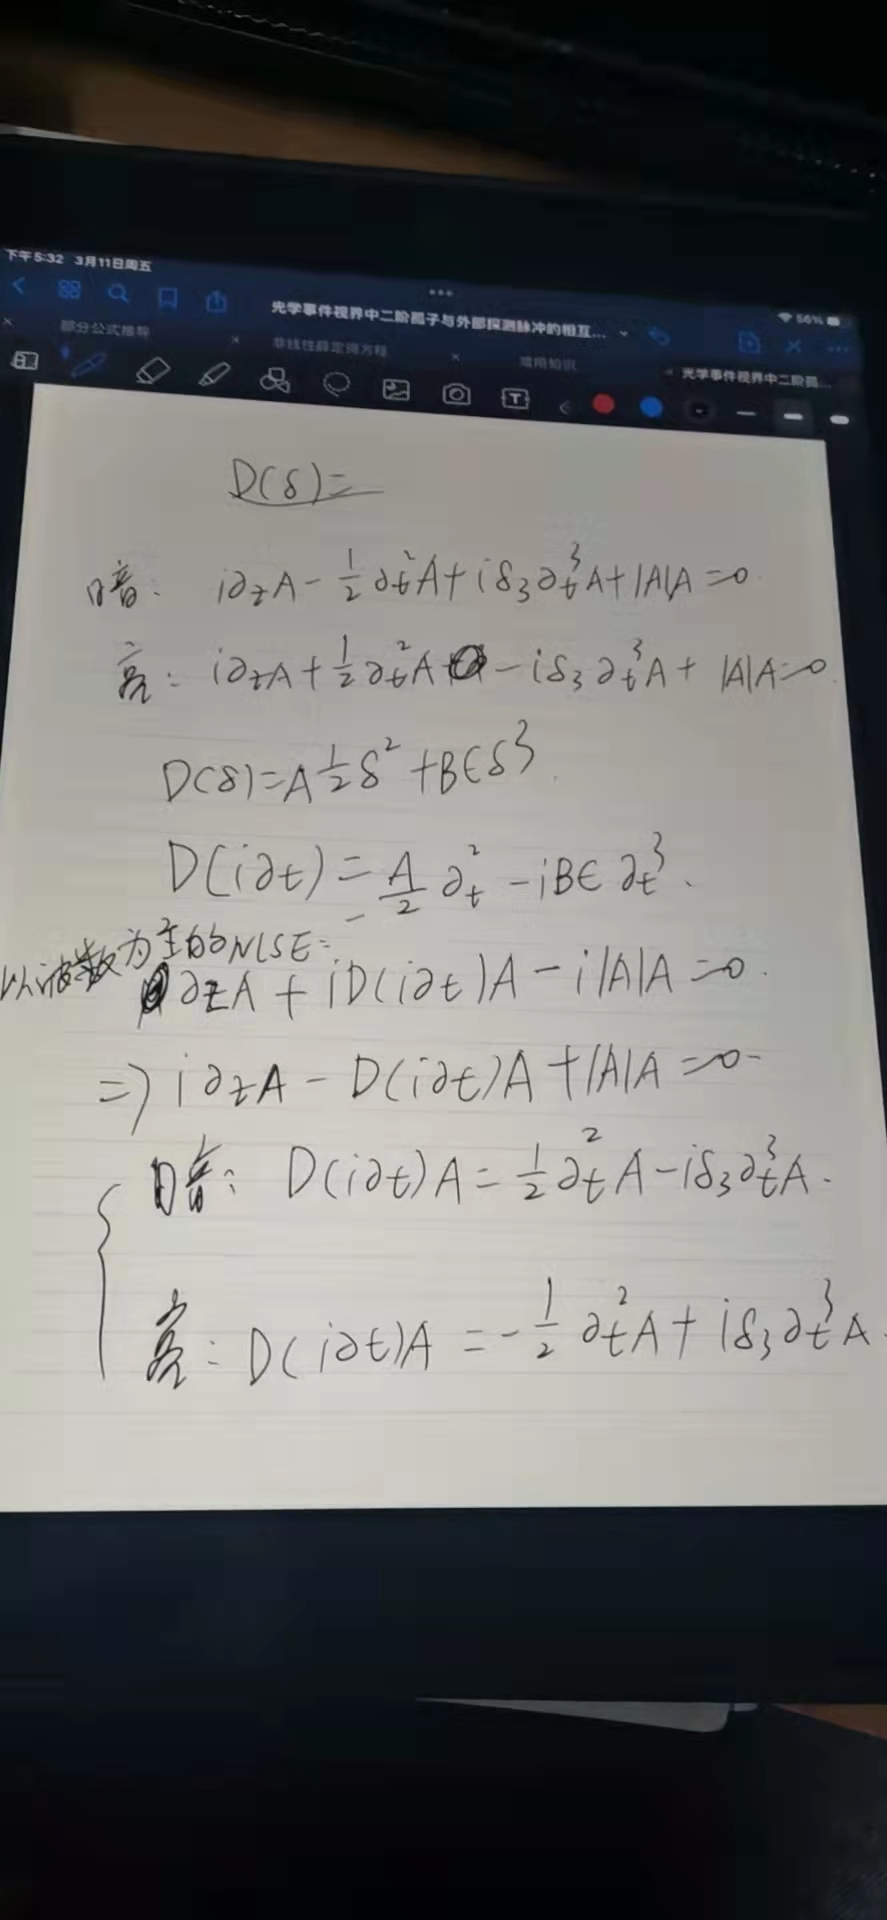 下午5:32 3月11日周五
56%
光学事件视界中二阶孤子与外部探测脉冲的相互...
部分公式推导
非线性薛定谔方程
常用知识
光学事件视界中二阶孤...
D(δ)=
暗: i∂zA - 1/2 ∂t²A + iδ₃∂t³A + |A|A = 0
亮: i∂zA + 1/2 ∂t²A - iδ₃∂t³A + |A|A = 0
D(δ) = A 1/2 δ² + Bϵδ³.
D(i∂t) = -A/2 ∂t² - iBϵ ∂t³.
以波数为主的NLSE:
∂zA + iD(i∂t)A - i|A|A = 0.
=> i∂zA - D(i∂t)A + |A|A = 0
暗: D(i∂t)A = 1/2 ∂t²A - iδ₃∂t³A.
亮: D(i∂t)A = -1/2 ∂t²A + iδ₃∂t³A.